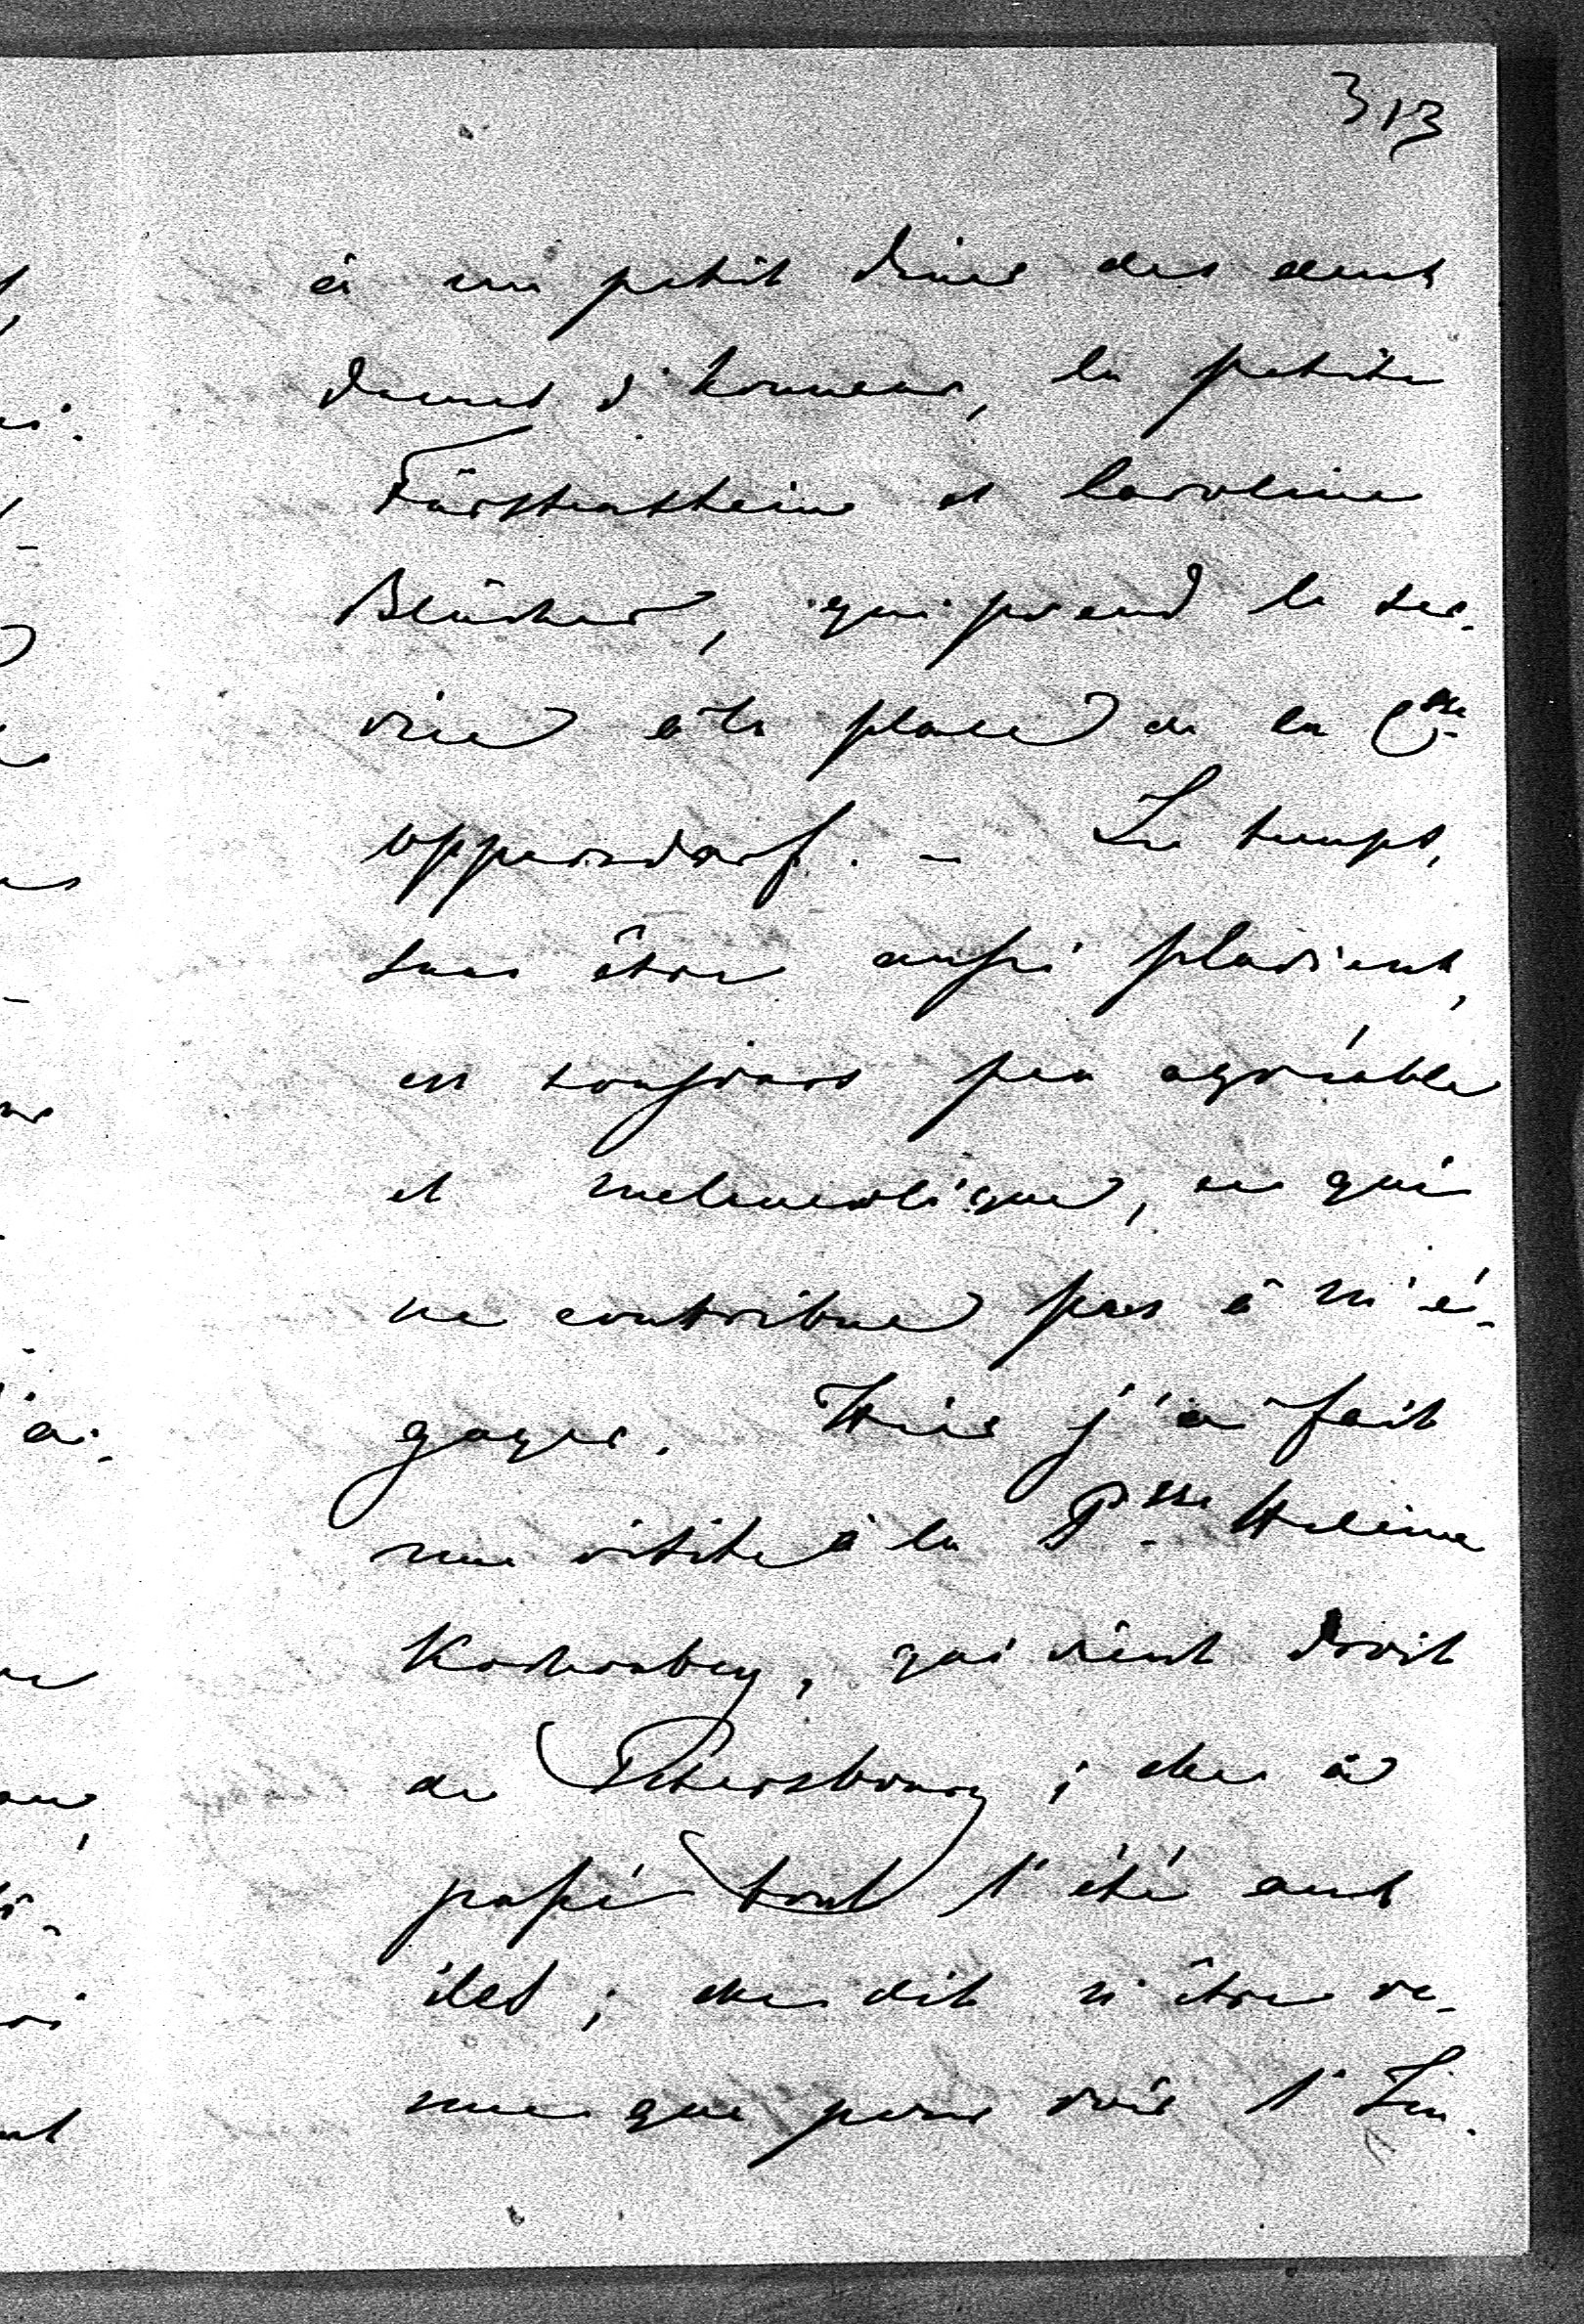 313
à un petit diner des deux
dames d'honneur, la petite
Fürstenstein et Caroline
Blücher, qui prend le ser-
vice à la place de la C^sse
Oppersdorf. – Le temps,
sans être aussi pluvieux,
est toujours peu agréable
et melancolique, ce qui
ne contribue pas à m'é-
gayer. Hier j'ai fait
une visite à la P^sse Helène
Kotchoubey, qui vient droit
de Petersbourg; elle a
passé tout l'été aux
iles; elle dit n'être ve-
nue que pour voir l'Im-